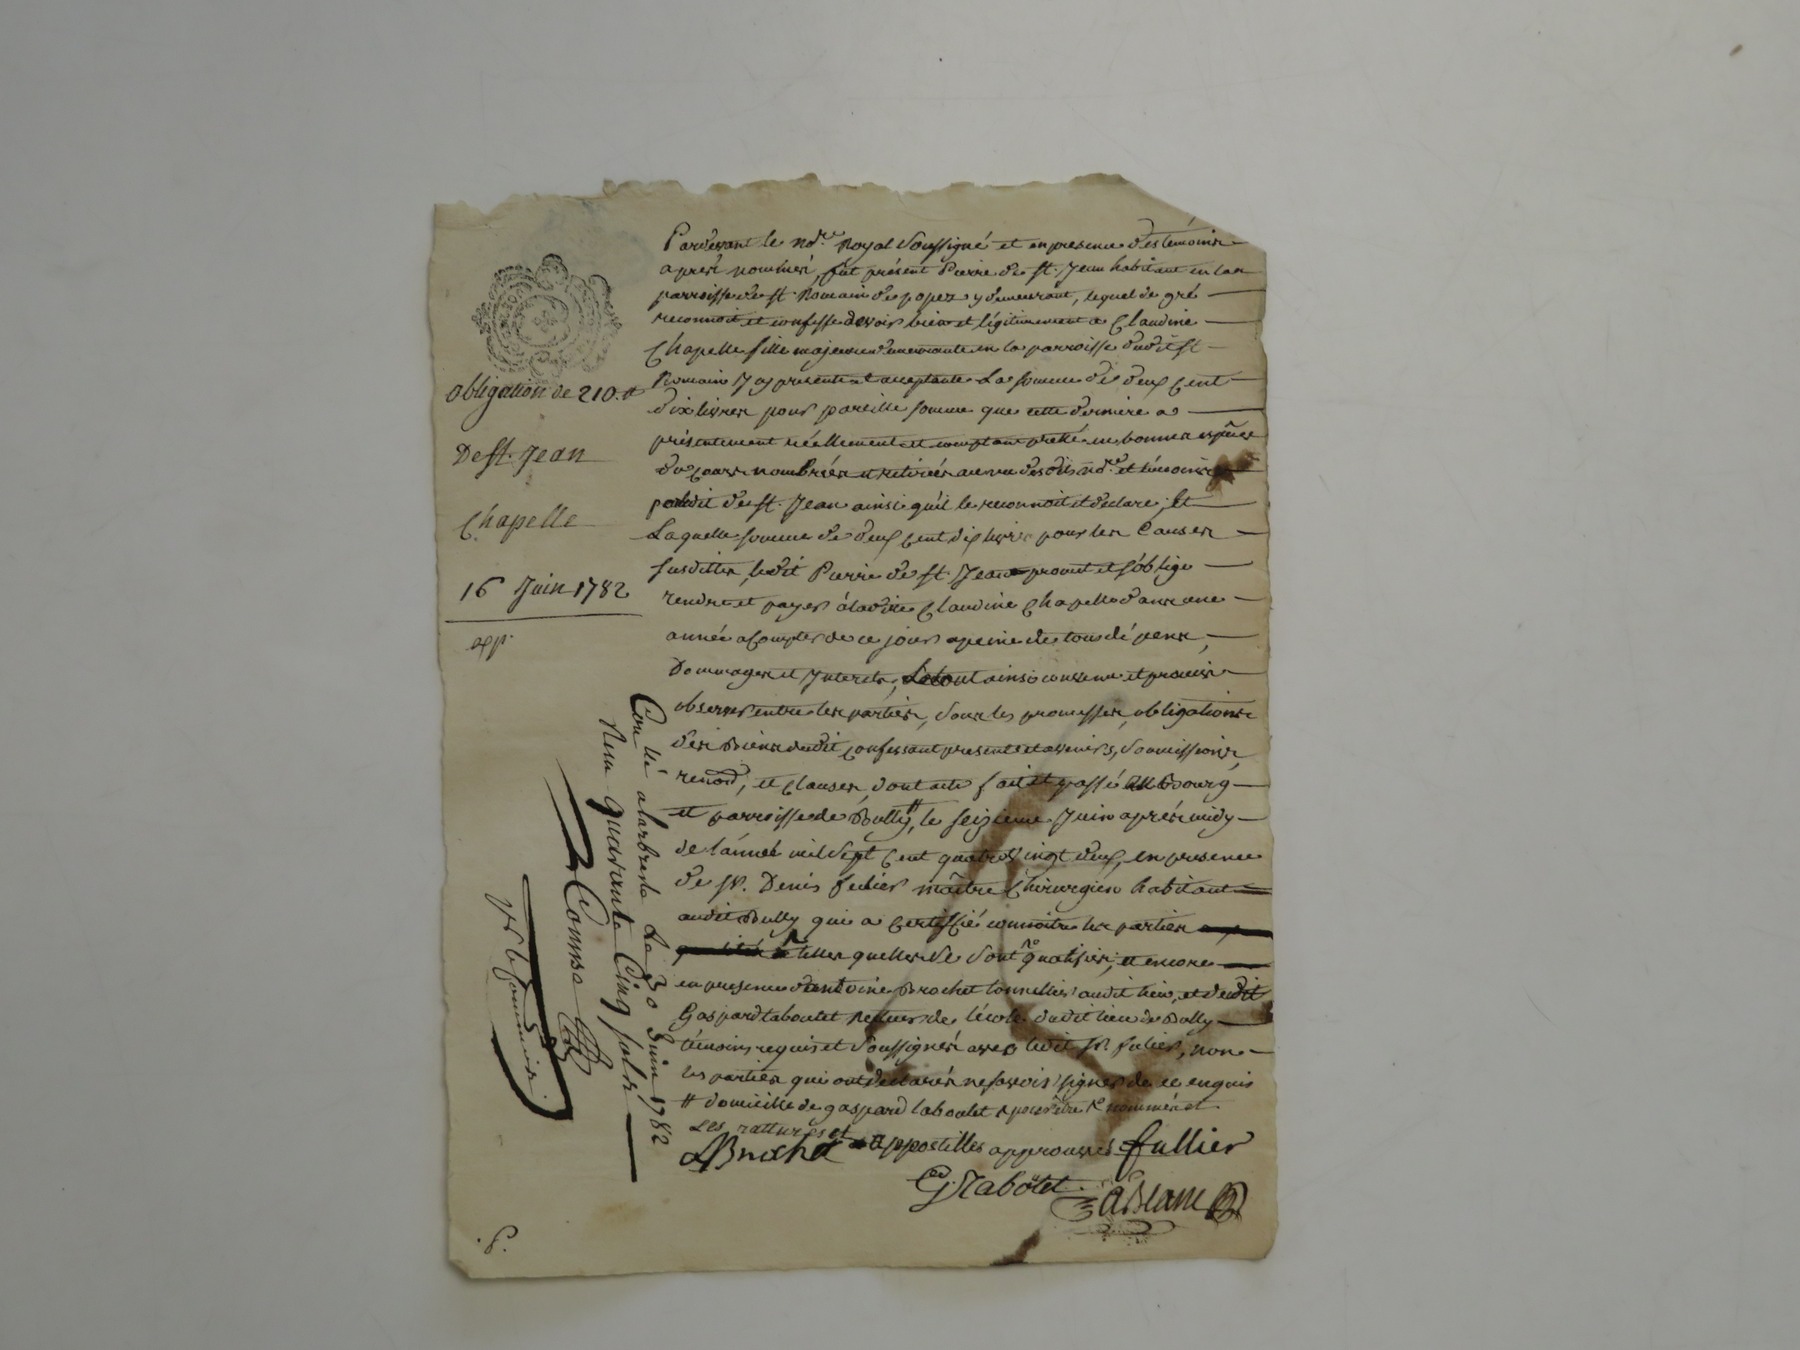 Pardevant le No.re Royal Soussigné et en presence des témoins
aprés nommés, fut présent Pierre de St. Jean habitant en la
parroisse de St. Romain de popez y demeurant, lequel de gré
reconnoit et confesse devoir bien et légitimement a Claudine
Chapelle fille majeure demeurante en la parroisse dudit St
Romain Icy presente et acceptante La somme de deux Cent
dix livres pour pareille somme que cette derniere a
présentement réellement et comptant pretté en bonnes espéces
de Cours nombrées et retirées au vu desdits no.re et témoins
par ledit de St. Jean ainsi qu'il le reconnoit et declare; Et
Laquelle somme de deux Cent dix livres pour les Causes
susdittes, ledit Pierre de St. Jean promet et s'oblige
rendre et payer à ladite Claudine Chapelle dans une
année a Compter de ce jour apeine de tous dépens,
Dommages et Interets, Le tout ainsi convenu et promis
observer entre les parties, sous les promesses, obligations
des Biens dudit Confessant presents et avenirs, soumissions,
renon.s, et Clauses, dont acte fait et passé au Bourg
et parroisse de Bully, # le seizieme Juin aprés midy
de l'année mil sept Cent quatre vingt deux, en presence
de Sr. Denis fulier maître Chirurgien habitant
audit Bully qui a Certiffié connoitre les parties
telles quelles se sont qualifiées, et encore
en presence d'antoine Brochet tonnellier audit lieu, et dudit
Gaspard taboulet Recteur de l'école dudit lieu de Bully
témoins requis et Soussignés avec ledit Sr. fulier, non
les parties qui ont declarés ne savoir signer de ce enquis
# domicille de gaspard taboulet nommé et
Les rattures et appostilles approuvés fullier
ABrochet
G Tabölet
Obligation de 210.#
De St. Jean
Chapelle
16 Juin 1782
exp.
Con.llé a larbresle Le 30 Juin 1782
Recu quarante Cinq sols
.8.